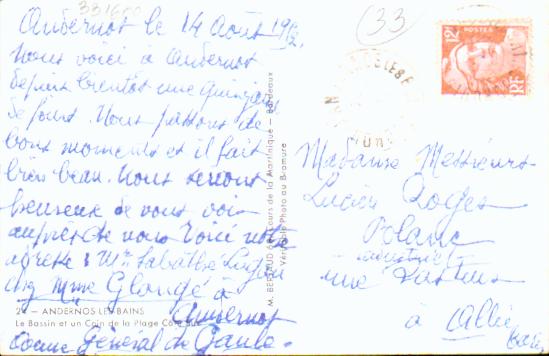 331600
Andernos le 14 Août 1952.
Nous voici à Andernos
depuis bientôt une quinzaine
de jours. Nous passons de
bons moments et il fait
bien beau. Nous serons
heureuse de vous voir
auprès de nous Voici notre
adresse : Mr Labatthe Lucien
chez Mme Glangé à
Andernos
General de Gaule.
24 - ANDERNOS LES BAINS
Le Bassin et un Coin de la Plage
M. BERTAUD, Cours de la Martinique - Bordeaux
Véritable Photo au Bromure
33
12
POSTES
RF
Madame Messieurs
Lucien Roges
Polanc
à